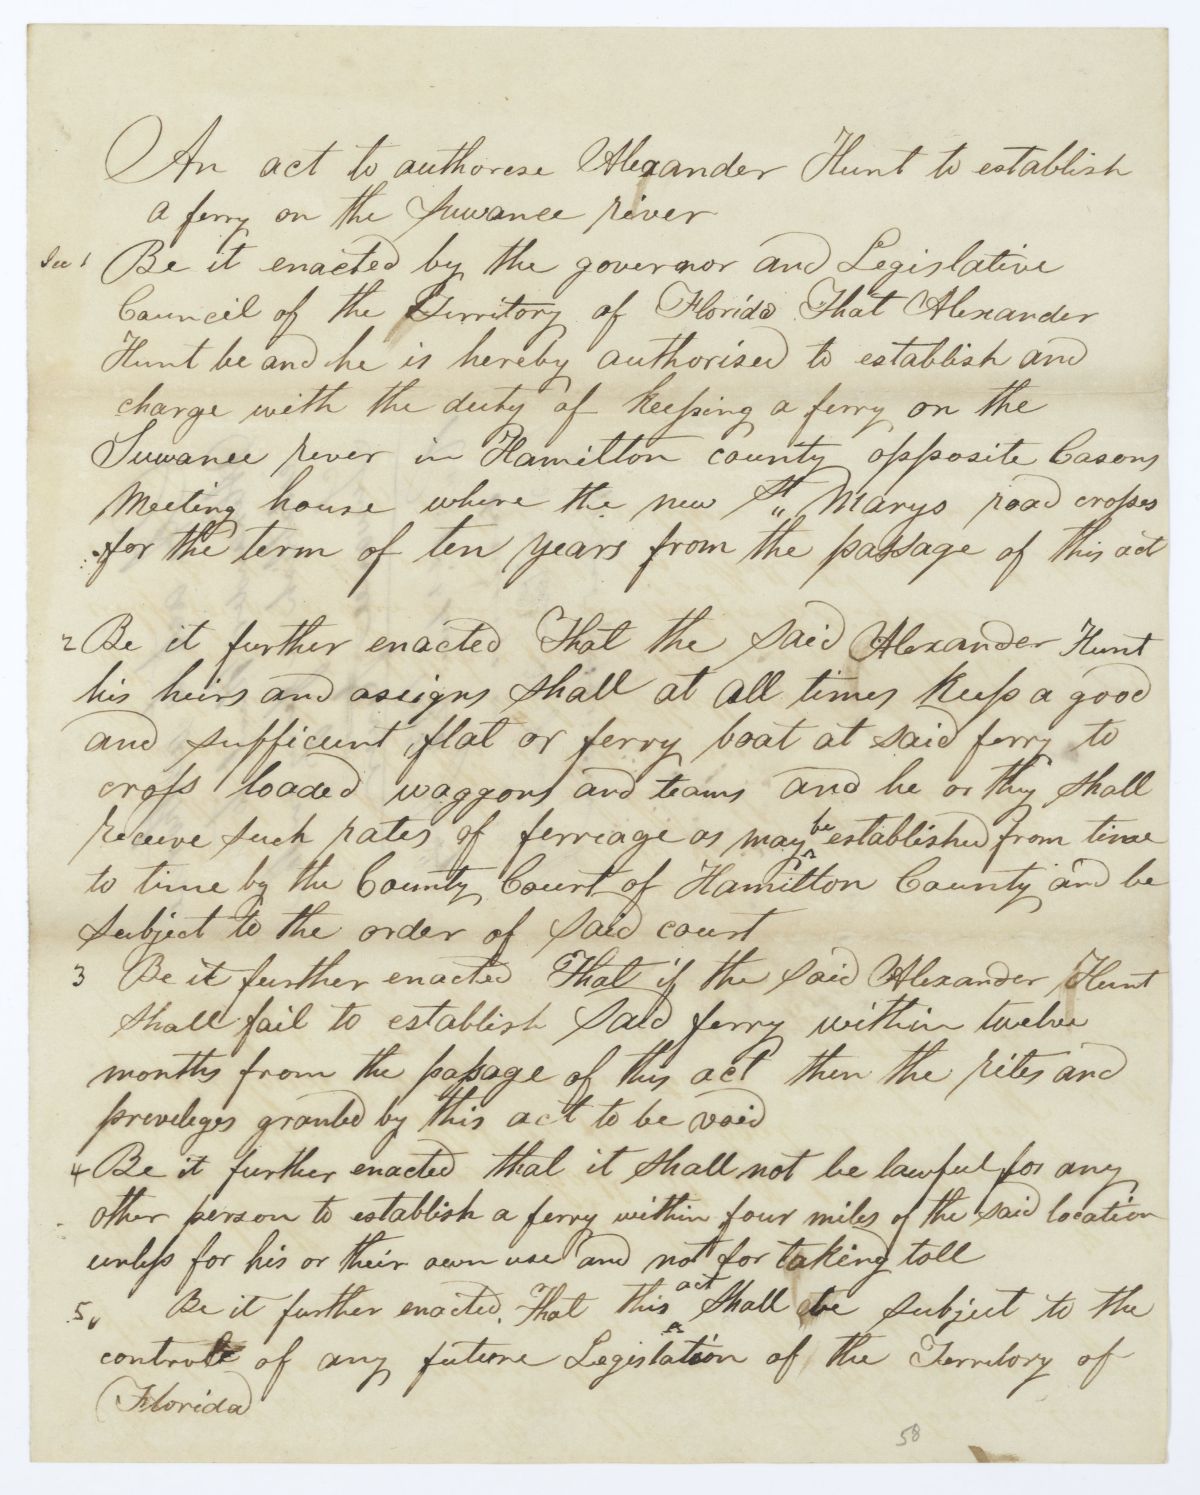 An act to authorese Alexander Hunt to establish
a ferry on the Suwanee river
Sec 1 Be it enacted by the governor and Legislative
Council of the Territory of Florida That Alexander
Hunt be and he is hereby authorised to establish and
charge with the duty of keeping a ferry on the
Suwanee river in Hamilton county opposite Casons
Meeting house where the new St,, Marys road crosses
for the term of ten years from the passage of this act
2 Be it further enacted That the said Alexander Hunt
his heirs and assigns shall at all times keep a good
and sufficient flat or ferry boat at said ferry to
cross loaded waggons and teams and he or thy shall
receive such rates of ferreage as may be established from time
to time by the County Court of Hamilton County and be
subject to the order of said court
3 Be it further enacted That if the said Alexander Hunt
shall fail to establish said ferry within twelve
months from the passage of this act then the rites and
preveleges granted by this act to be void
4 Be it further enacted that it shall not be lawful for any
other person to establish a ferry within four miles of the said location
unless for his or their own use and not for taking toll
5,, Be it further enacted. That this act shall be subject to the
controle of any future Legislation of the Territory of
Florida
58